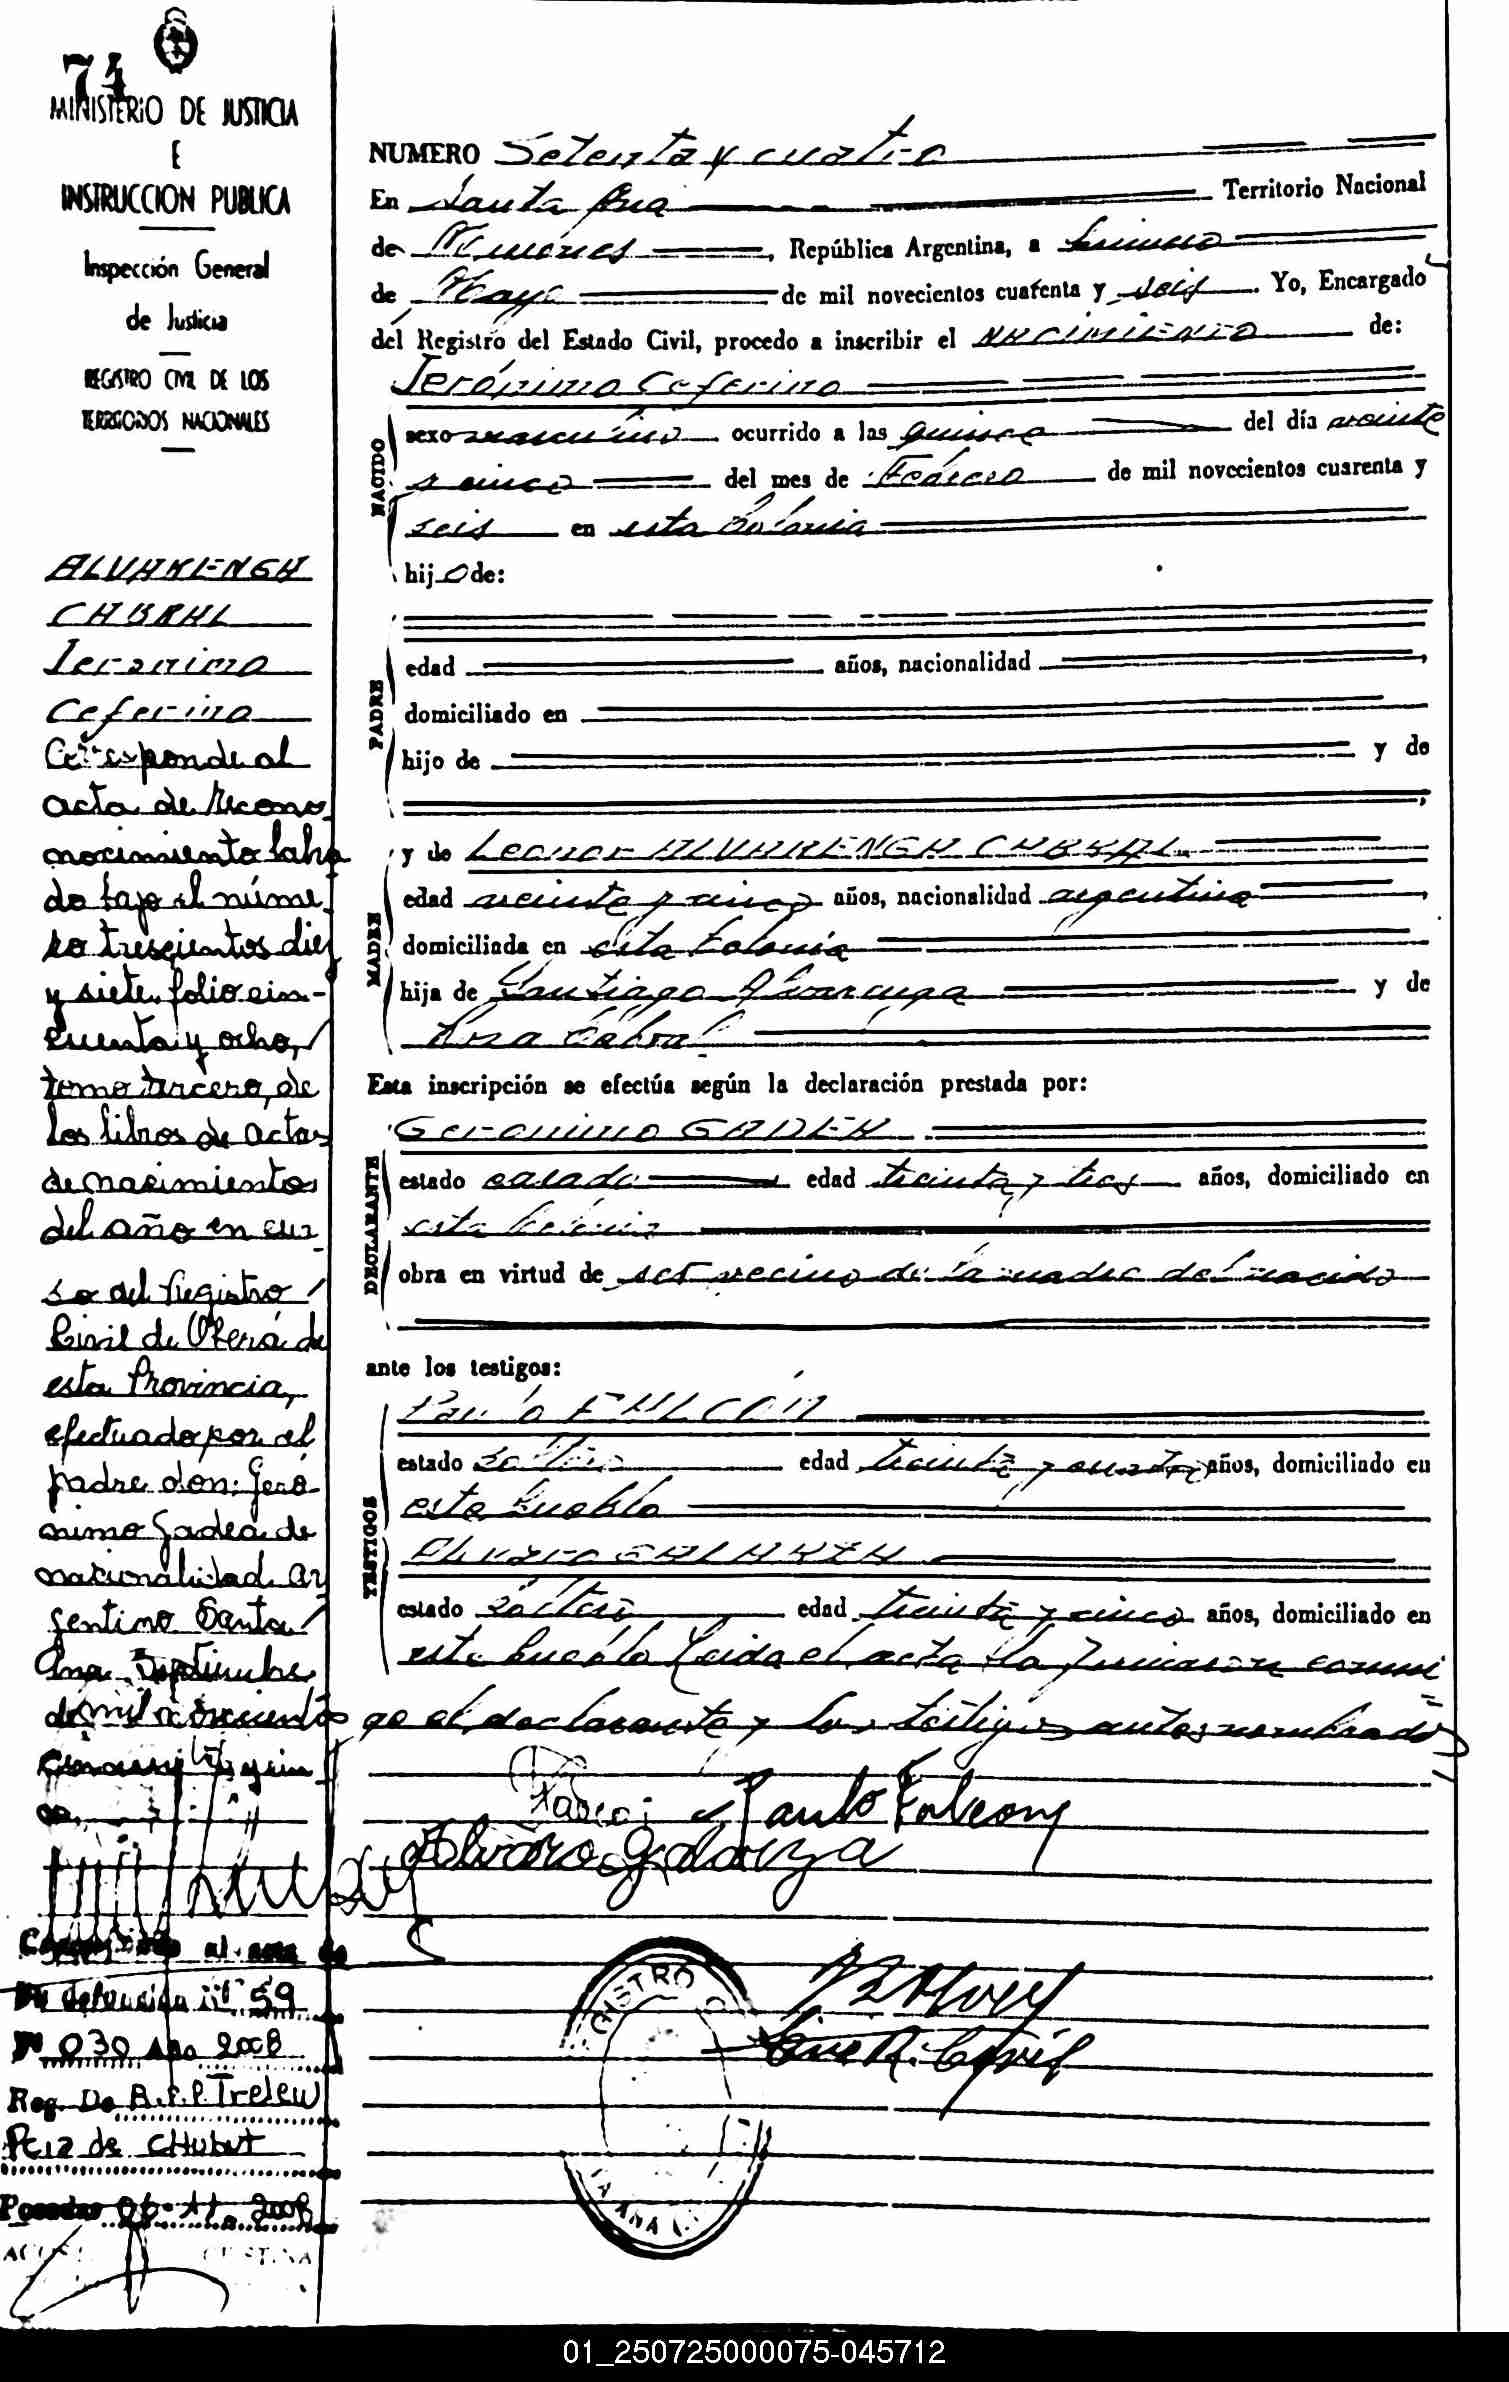 74
MINISTERIO DE JUSTICIA
E
INSTRUCCION PUBLICA
Inspección General
de Justicia
REGISTRO CIVIL DE LOS
TERRITORIOS NACIONALES
ALVARENGA
CABRAL
Jeronimo
Ceferino
Corresponde al
acta de recono
nocimiento labra
do bajo el núme-
ro trescientos diez
y siete, folio cin-
cuenta y ocho,
tomo tercero, de
los libros de actas
de nacimientos
del año en cur-
so del Registro
Civil de Oberá de
esta Provincia,
efectuado por el
padre don: Geró
nimo Gadea de
nacionalidad ar
gentino Santa
Ana, Septiembre
de mil novecientos
al acta de
De defunción nº 59
Fº 030 Año 2008
Reg. De R.P.P. Trelew
Pciz de CHubut
Posadas 06-11-2008
NUMERO Setenta y cuatro
En Santa Ana Territorio Nacional
de Misiones, República Argentina, a
de Mayo de mil novecientos cuarenta y seis. Yo, Encargado
del Registro del Estado Civil, procedo a inscribir el NACIMIENTO de:
Jerónimo Ceferino
NACIDO
sexo masculino ocurrido a las quince del día veinte
y cinco del mes de Febrero de mil novecientos cuarenta y
seis en esta Colonia
hijo de:
PADRE
edad años, nacionalidad
domiciliado en
hijo de y de
MADRE
y de Leonor ALVARENGA CABRAL
edad veinte y cinco años, nacionalidad argentina
domiciliada en esta Colonia
hija de Santiago Alvarenga y de
Rosa Cabral
Esta inscripción se efectúa según la declaración prestada por:
DECLARANTE
Geronimo GADEA
estado casado edad treinta y tres años, domiciliado en
esta Colonia
obra en virtud de ser vecino de la madre del nacido
ante los testigos:
TESTIGOS
Paulo FALCÓN
estado soltero edad treinta y cuatro años, domiciliado en
este Pueblo
Alvaro GALARZA
estado soltero edad treinta y cinco años, domiciliado en
este Pueblo Leida el acta la firmaron conmi
go el declarante y los testigos antes nombrados
Gadea
Paulo Falcon
Alvaro Galarza
01_250725000075-045712